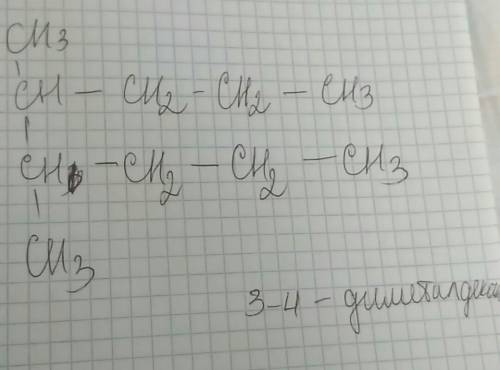 CH3
CH — CH2 — CH2 — CH3
CH — CH2 — CH2 — CH3
CH3
3-4 - диметилдекан